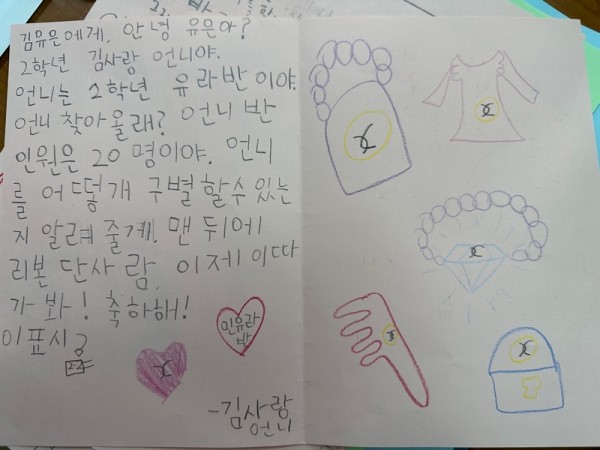 김유은에게, 안녕 유은아?
2학년 김사랑 언니야.
언니는 2학년 유라반이야.
언니 찾아올래? 언니 반
인원은 20명이야. 언니
를 어떻개 구별할수있는
지 알려줄게. 맨 뒤에
리본 단사람. 이제 이따
가 봐! 축하해!
이표시?
민유라
반
-김사랑
언니